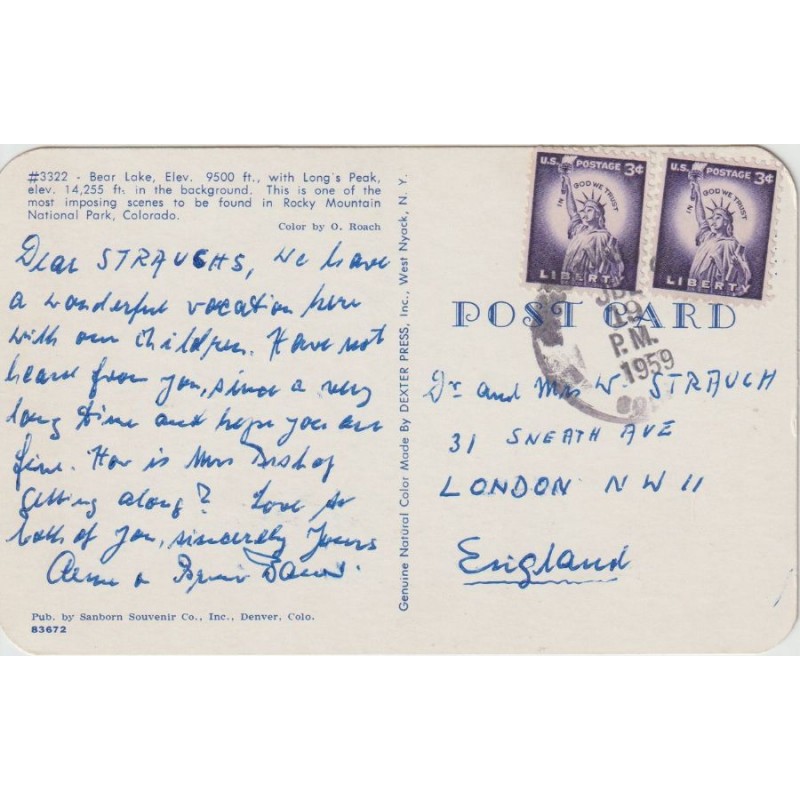 #3322 - Bear Lake, Elev. 9500 ft., with Long's Peak,
elev. 14,255 ft. in the background. This is one of the
most imposing scenes to be found in Rocky Mountain
National Park, Colorado.
Color by O. Roach
Dear STRAUCHS, We have
a wonderful vocation here
with our children. Have not
heard from you, since a very
long time and hope you are
fine. How is Mrs Bishop
getting along? Love to
both of you, sincerely Yours
Pub. by Sanborn Souvenir Co., Inc., Denver, Colo.
83672
Genuine Natural Color Made By DEXTER PRESS, Inc., West Nyack, N. Y.
U.S. POSTAGE 3¢
IN GOD WE TRUST
LIBERTY
U.S. POSTAGE 3¢
IN GOD WE TRUST
LIBERTY
POST CARD
P.M.
1959
Dr and Mrs W. STRAUCH
31 SNEATH AVE
LONDON NW 11
England